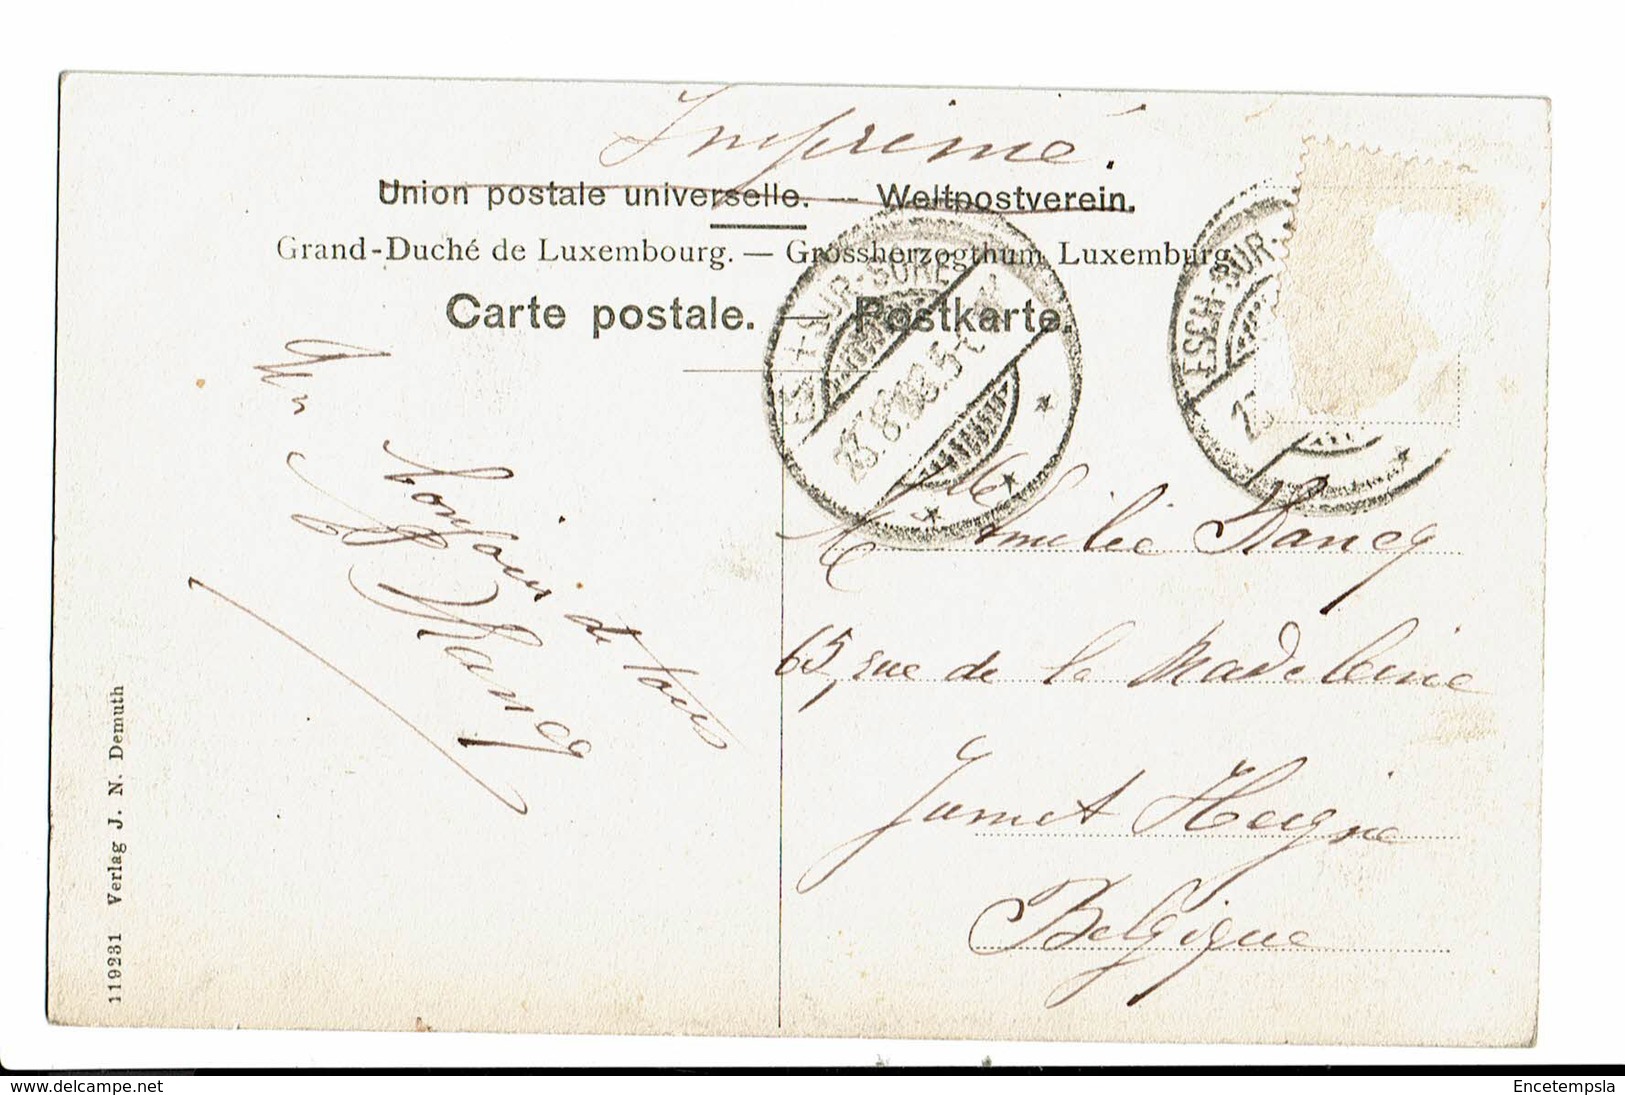 Imprimé.
Union postale universelle. — Weltpostverein.
Grand-Duché de Luxembourg. — Grossherzogthum Luxemburg.
Carte postale. — Postkarte.
ESCH-SUR-SURE
ESCH-SUR-
Un
bonjour de tous
Mlle Amelie
65, rue de la Madeleine
Jumet Heigne
Belgique
119231 Verlag J. N. Demuth
www.delcampe.net
Encetempsla